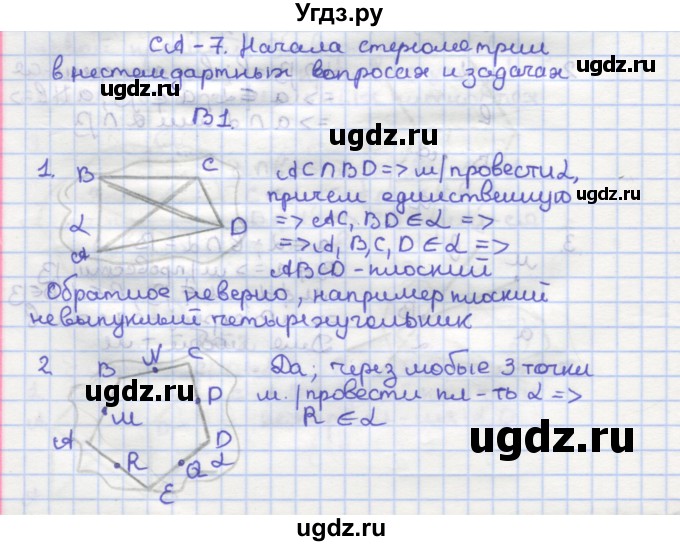 Угдз.ру
СА-7. Начала стереометрии
в нестандартных вопросах и задачах
ugdz.ru
ugdz.ru
В1.
1.
B
C
AC∩BD => м/провести α,
причем единственную
α
D
=> AC, BD ∈ α =>
A
=> A, B, C, D ∈ α =>
ugdz.ru
ABCD - плоский
Обратное неверно, например плоский
невыпуклый четырехугольник
2
B
N
C
Да; через любые 3 точки
ugdz.ru
P
м./провести пл-ть α =>
M
R ∈ α
A
R
Q
D
α
ugdz.ru
E
ugdz.ru